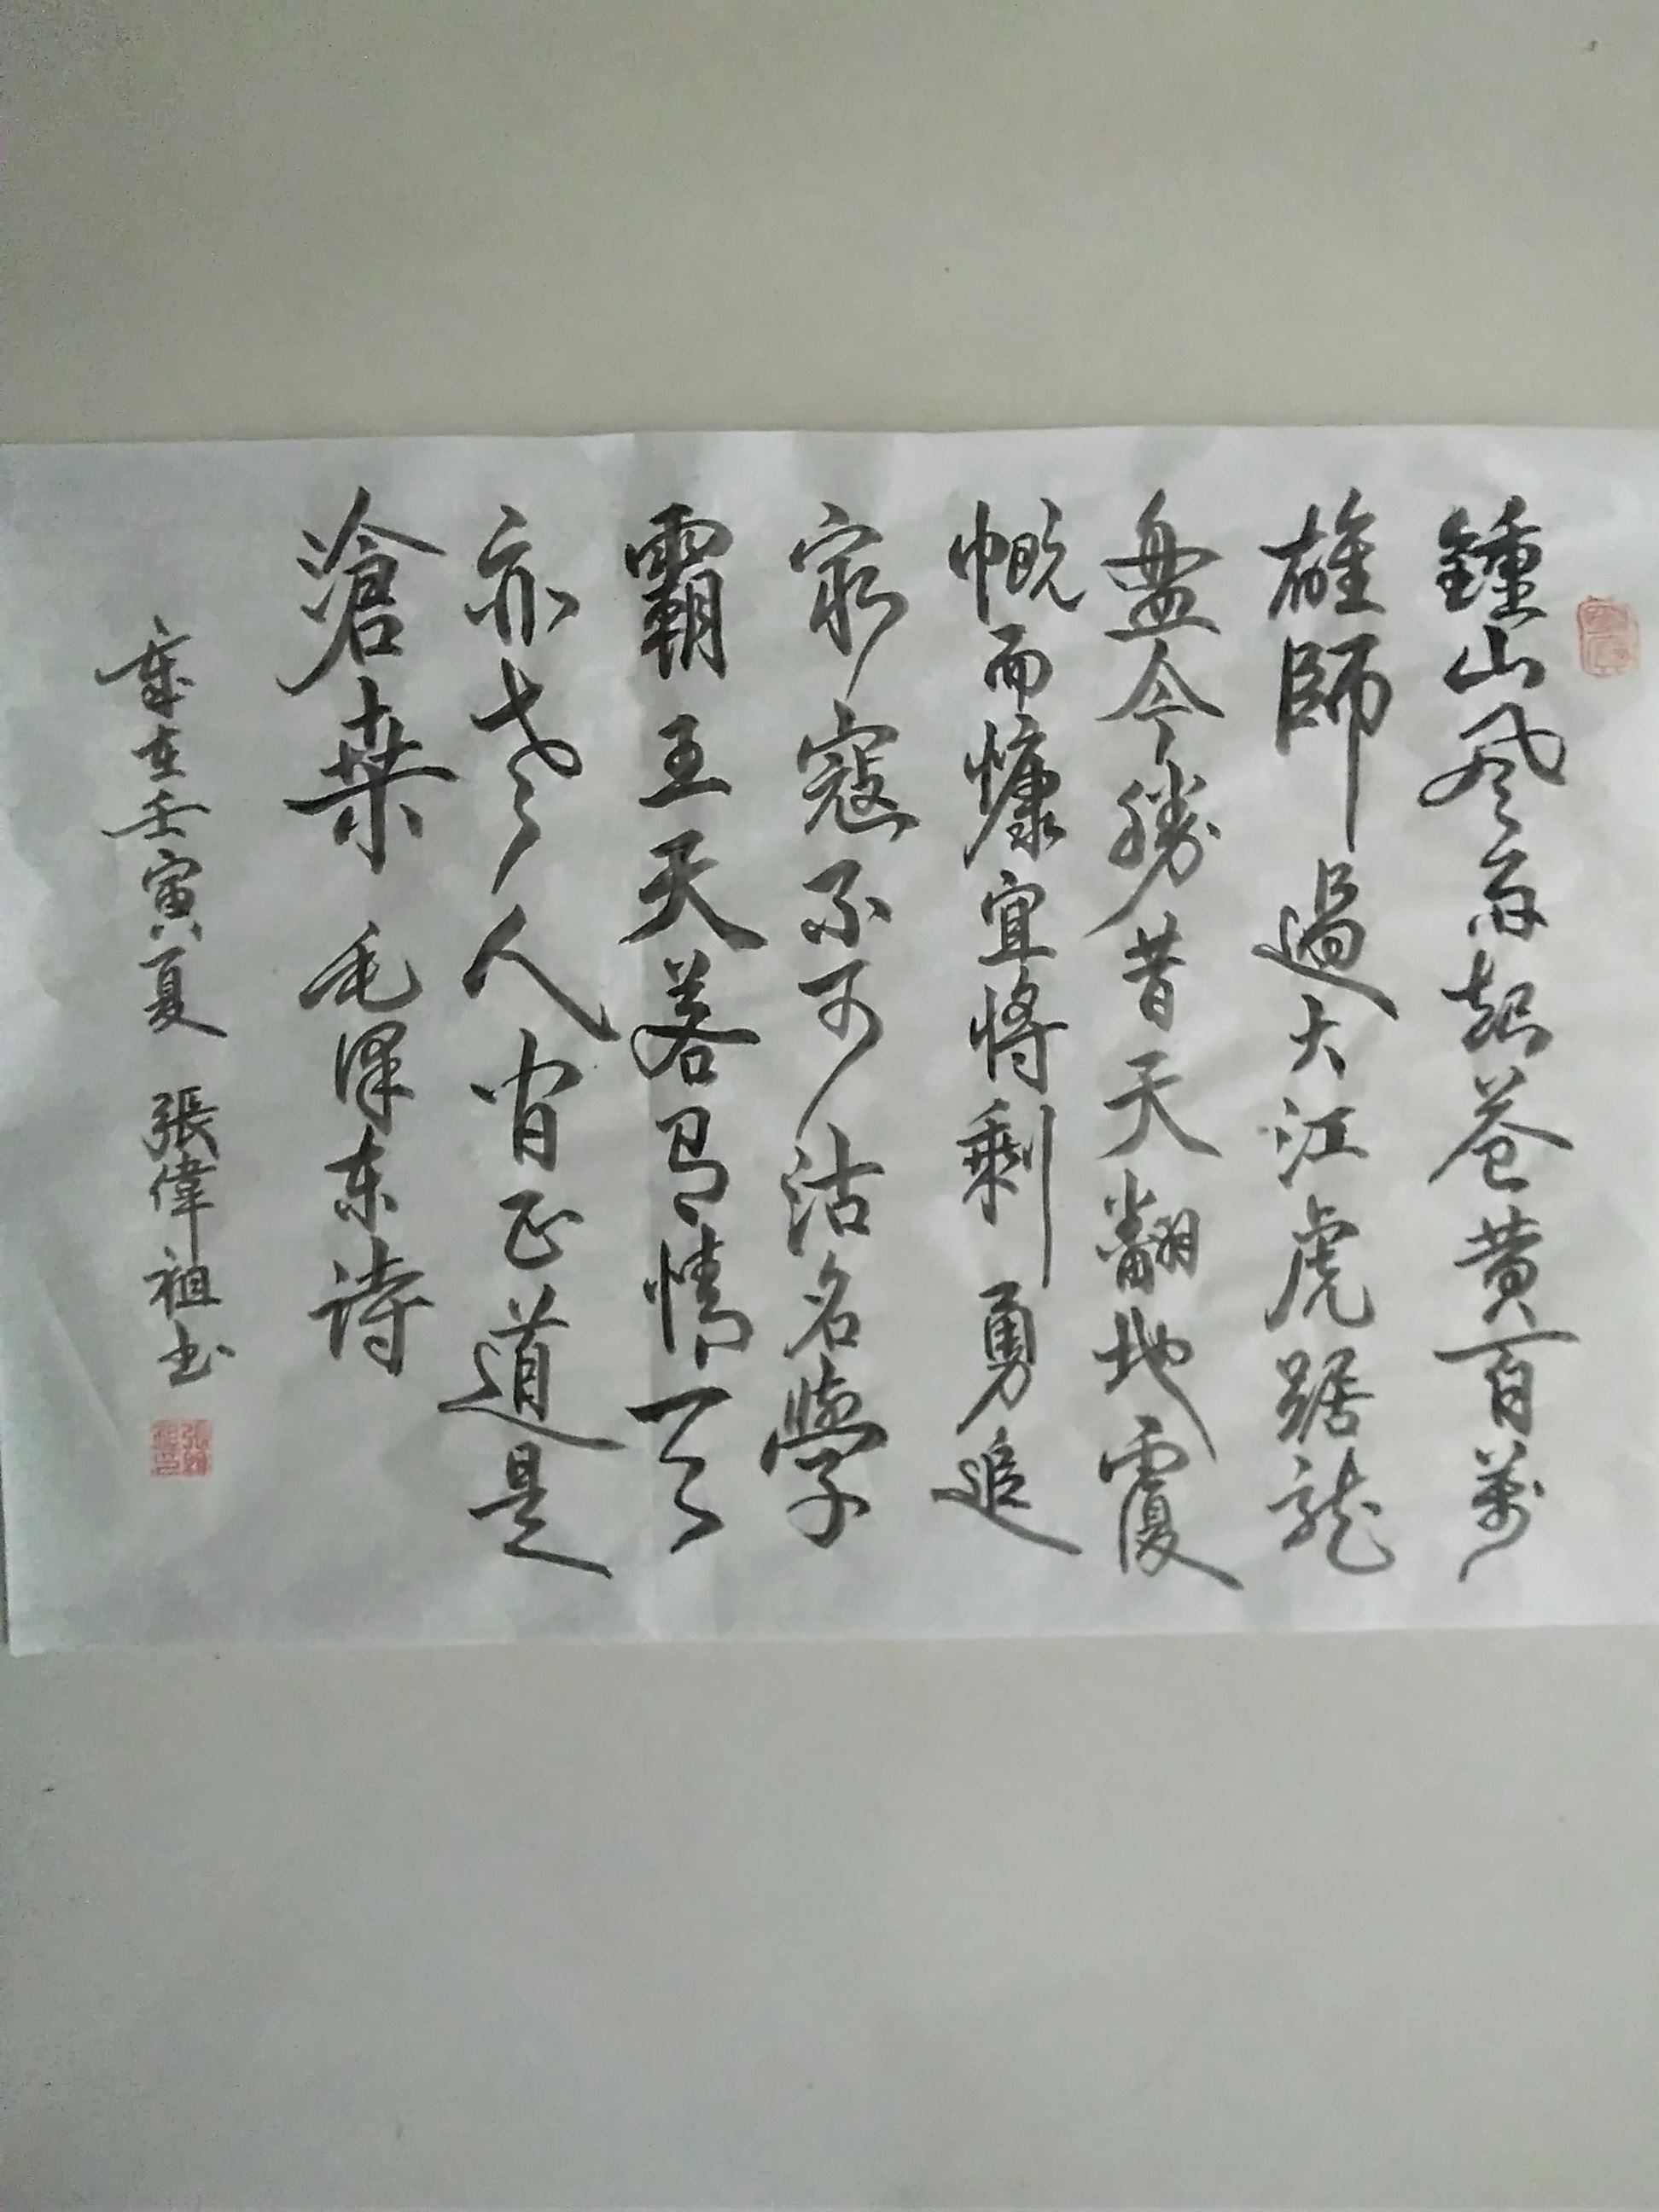 鍾山风雨起苍黄百萬
雄師過大江虎踞龙
盘今勝昔天翻地覆
慨而慷宜将剩勇追
穷寇不可沽名學
霸王天若有情天
亦老人间正道是
滄桑 毛泽东诗
歲在壬寅夏 張偉祖书